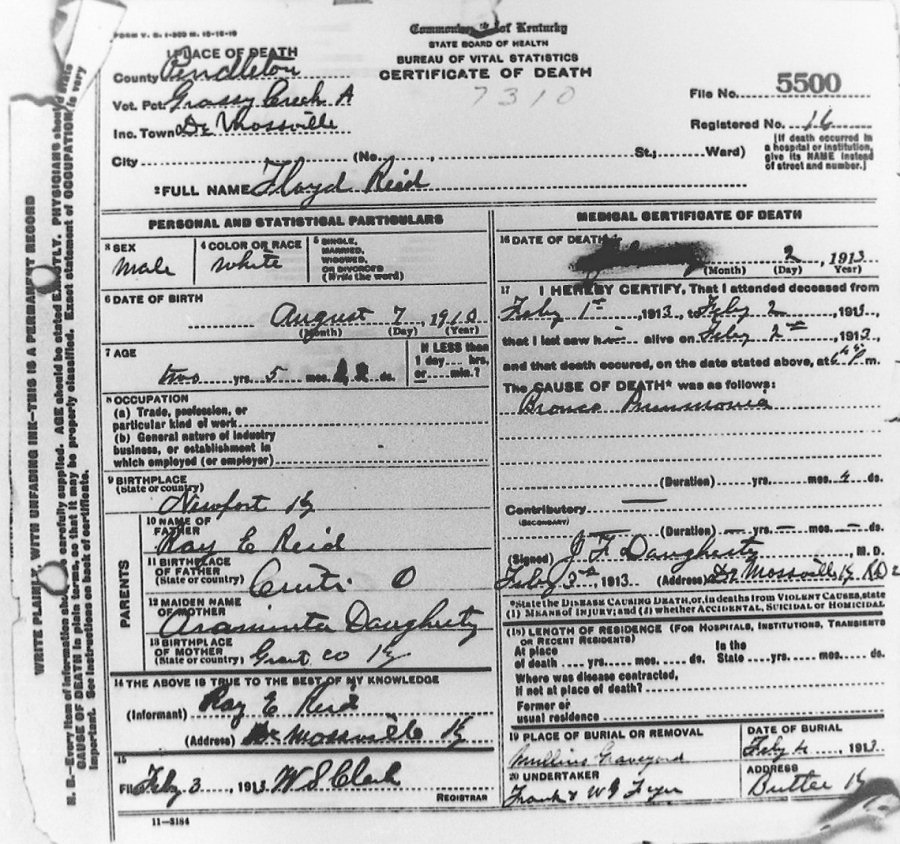 FORM V. S. 1-
Commonwealth of Kentucky
STATE BOARD OF HEALTH
BUREAU OF VITAL STATISTICS
CERTIFICATE OF DEATH
7310
1 PLACE OF DEATH
County Pendleton
Vot. Pct. Grassy Creek A
Inc. Town De Mossville
City (No. , St.; Ward)
File No. 5500
Registered No. 16
[If death occurred in
a hospital or institution,
give its NAME instead
of street and number.]
2 FULL NAME Floyd Reid
PERSONAL AND STATISTICAL PARTICULARS
3 SEX
male
4 COLOR OR RACE
White
5 SINGLE,
MARRIED,
WIDOWED,
OR DIVORCED
(Write the word)
6 DATE OF BIRTH
August 7, 1910
(Month) (Day) (Year)
7 AGE
two yrs. 5 mos. ds.
If LESS than
1 day.... hrs.
or....min.?
8 OCCUPATION
(a) Trade, profession, or
particular kind of work
(b) General nature of industry
business, or establishment in
which employed (or employer)
9 BIRTHPLACE
(State or country)
Newport Ky
PARENTS
10 NAME OF
FATHER
Ray E Reid
11 BIRTHPLACE
OF FATHER
(State or country)
O
12 MAIDEN NAME
OF MOTHER
Araminta Daugherty
13 BIRTHPLACE
OF MOTHER
(State or country)
Grant co Ky
14 THE ABOVE IS TRUE TO THE BEST OF MY KNOWLEDGE
(Informant) Ray E Reid
(Address) De Mossville Ky
15
Feby 3, 1913 W S Clark
REGISTRAR
11-3184
MEDICAL CERTIFICATE OF DEATH
16 DATE OF DEATH
2, 1913
(Month) (Day) Year)
17 I HEREBY CERTIFY, That I attended deceased from
Feby 1st, 1913, Feby 2, 1913,
that I last saw him alive on Feby 2nd, 1913,
and that death occured, on the date stated above, at 6 P m.
The CAUSE OF DEATH* was as follows:
Bronco Pneumonia
(Duration) yrs. mos. 4 ds.
Contributory —
(SECONDARY)
(Duration) — yrs. — mos. — ds.
(Signed) J F Daugherty, M. D.
Feby 3rd, 1913 (Address) De Mossville Ky RD 2
*State the DISEASE CAUSING DEATH, or, in deaths from VIOLENT CAUSES, state
(1) MEANS OF INJURY; and (2) whether ACCIDENTAL, SUICIDAL or HOMICIDAL
(18) LENGTH OF RESIDENCE (FOR HOSPITALS, INSTITUTIONS, TRANSIENTS
OR RECENT RESIDENTS)
At place In the
of death .... yrs. mos. ds. State .... yrs. mos. ds.
Where was disease contracted,
If not at place of death?
Former or
usual residence
19 PLACE OF BURIAL OR REMOVAL
Mullins Graveyard
DATE OF BURIAL
Feby 4, 1913
20 UNDERTAKER
Frank & W J Fryer
ADDRESS
Butler Ky
WRITE PLAINLY, WITH UNFADING INK—THIS IS A PERMANENT RECORD
N. B.—Every item of information should be carefully supplied. AGE should be stated EXACTLY. PHYSICIANS should state
CAUSE OF DEATH in plain terms, so that it may be properly classified. Exact statement of OCCUPATION is very
important. See instructions on back of certificate.